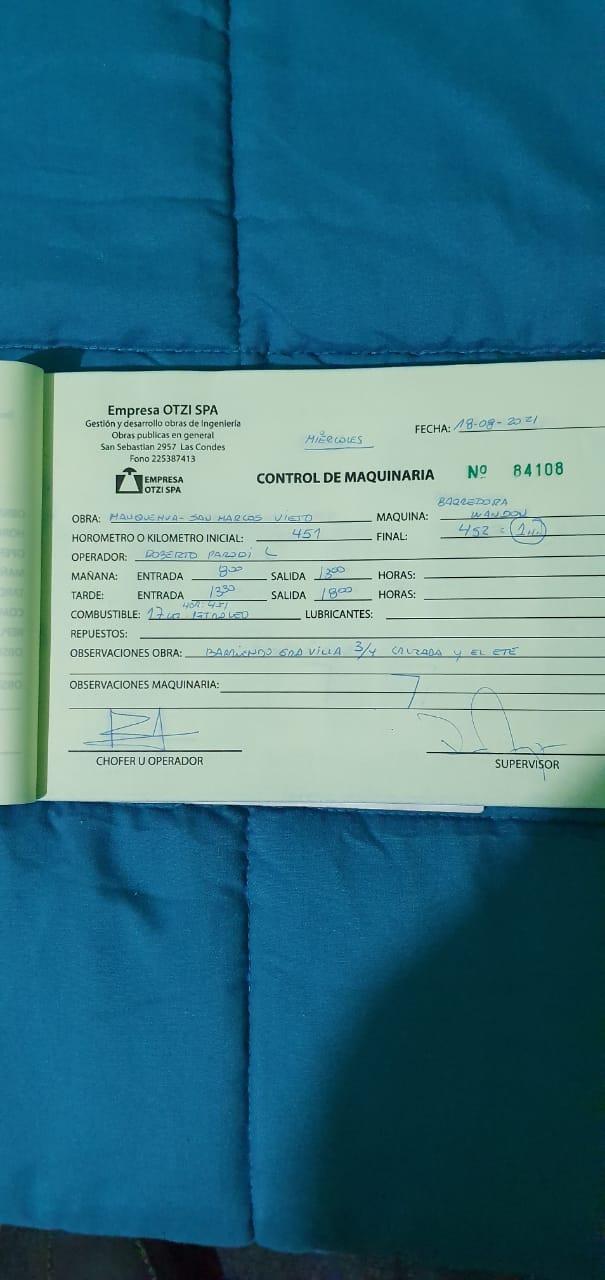 Empresa OTZI SPA
Gestión y desarrollo obras de Ingeniería
Obras publicas en general
San Sebastian 2957 Las Condes
Fono 225387413
EMPRESA
OTZI SPA
MIÉRCOLES
FECHA: 18-08-2021
CONTROL DE MAQUINARIA Nº 84108
OBRA: MAUQUENHUA - SAN MARCOS VIEJO MAQUINA: BARREDORA
HOROMETRO O KILOMETRO INICIAL: 451 FINAL: 452 =
OPERADOR: ROBERTO PARODI L
MAÑANA: ENTRADA 8:00 SALIDA 13:00 HORAS:
TARDE: ENTRADA 13:30 SALIDA 18:00 HORAS:
HOR: 451
COMBUSTIBLE: PETROLEO LUBRICANTES:
REPUESTOS:
OBSERVACIONES OBRA: BARRIENDO GRAVILLA 3/4 CALZADA Y EL EJE
OBSERVACIONES MAQUINARIA:
CHOFER U OPERADOR
SUPERVISOR